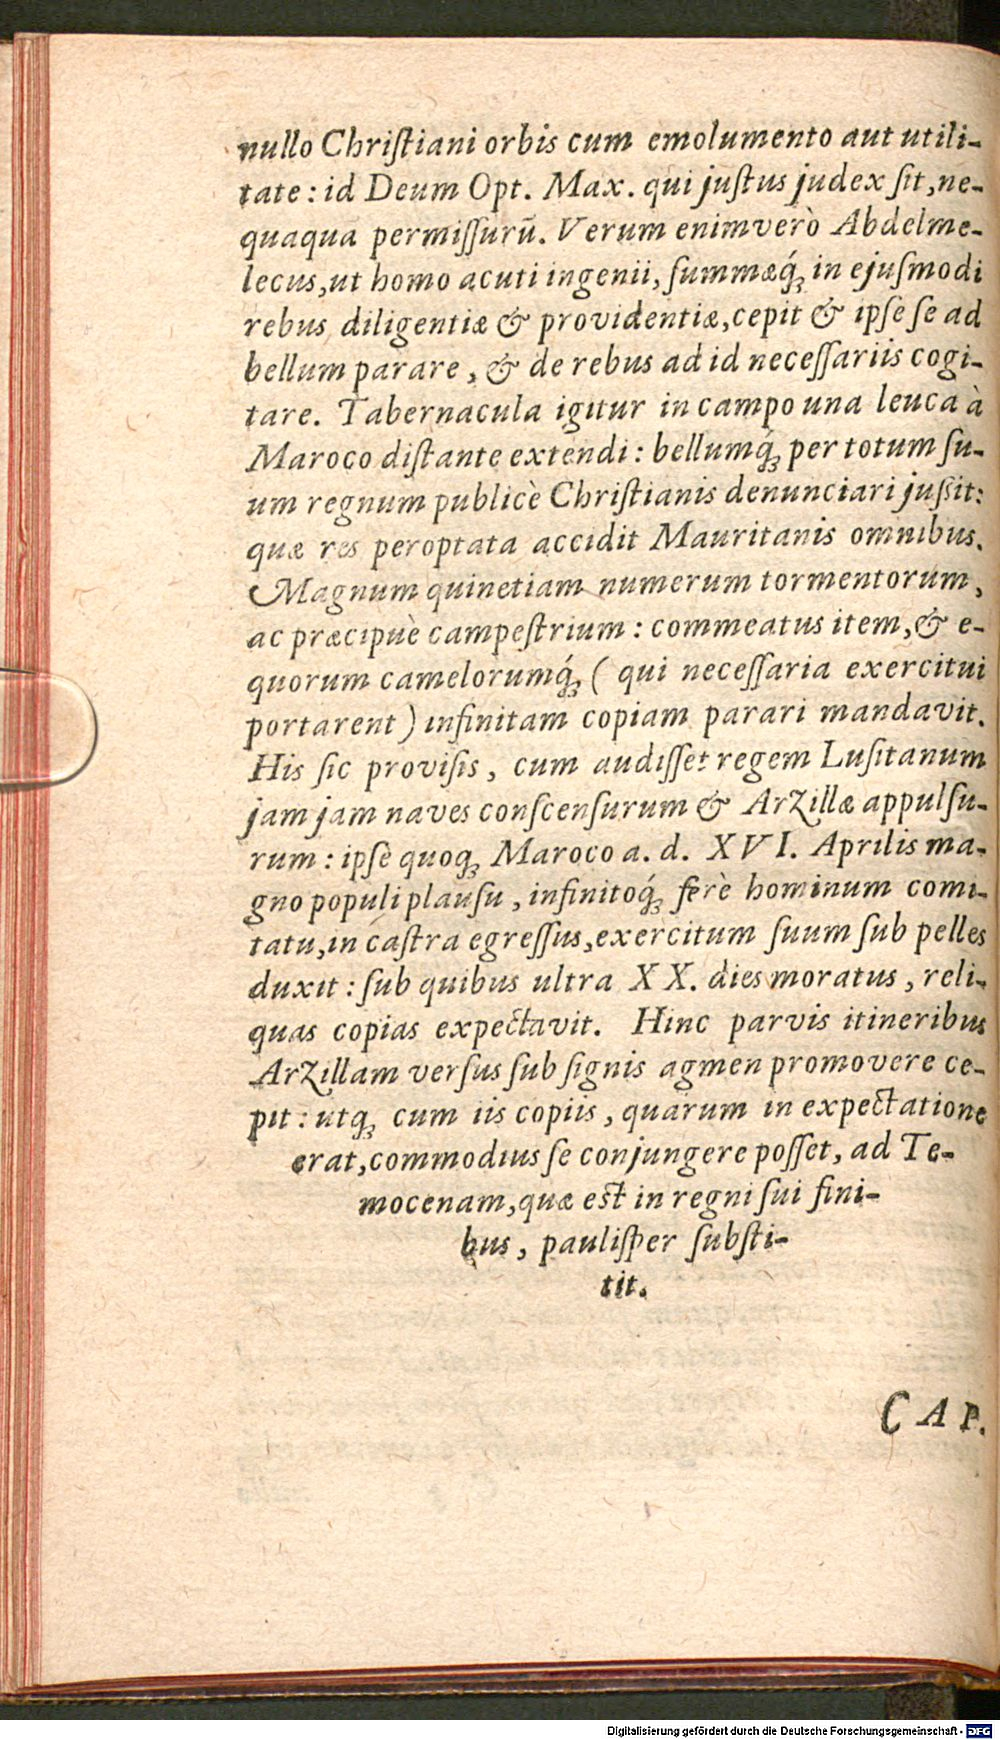 nullo Chriſtiani orbis cum emolumento aut utili-
tate: id Deum Opt. Max. qui juſtus judex ſit, ne-
quaqua permiſſurū. Verum enimverò Abdelme-
lecus, ut homo acuti ingenii, ſummæq́; in ejuſmodi
rebus diligentiæ & providentiæ, cepit & ipſe ſe ad
bellum parare, & de rebus ad id neceſſariis cogi-
tare. Tabernacula igitur in campo una leuca à
Maroco diſtante extendi: bellumq́; per totum ſu-
um regnum publicè Chriſtianis denunciari juſsit:
quæ res peroptata accidit Mauritanis omnibus.
Magnum quinetiam numerum tormentorum,
ac præcipuè campeſtrium: commeatus item, & e-
quorum camelorumq́; ( qui neceſſaria exercitui
portarent ) infinitam copiam parari mandavit.
His ſic proviſis, cum audiſſet regem Luſitanum
jam jam naves conſcenſurum & Arzillæ appulſu-
rum: ipſe quoq; Maroco a. d. XVI. Aprilis ma-
gno populi plauſu, infinitoq́; ferè hominum comi-
tatu, in caſtra egreſſus, exercitum ſuum ſub pelles
duxit: ſub quibus ultra XX. dies moratus, reli-
quas copias expectavit. Hinc parvis itineribus
Arzillam verſus ſub ſignis agmen promovere ce-
pit: utq; cum iis copiis, quarum in expectatione
erat, commodius ſe conjungere poſſet, ad Te-
mocenam, quæ est in regni ſui fini-
bus, pauliſper ſubſti-
tit.
CAP.
Digitalisierung gefördert durch die Deutsche Forschungsgemeinschaft - DFG